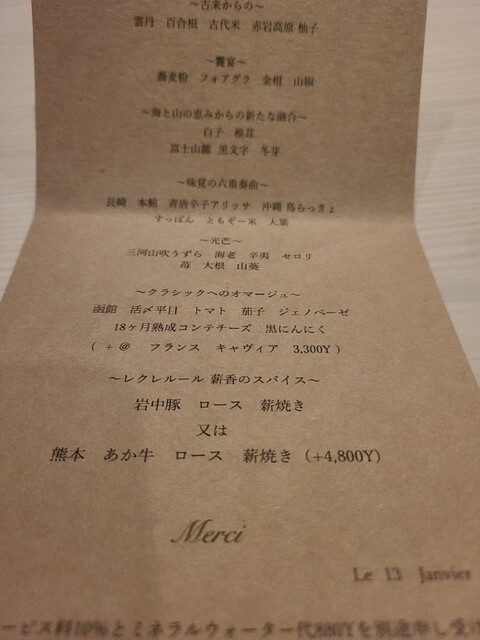 ～古来からの～
雲丹 百合根 古代米 赤岩高原 柚子
～饗宴～
蕎麦粉 フォアグラ 金柑 山椒
～海と山の恵みからの新たな融合～
白子 椎茸
富士山麓 黒文字 冬芽
～味覚の六重奏曲～
長崎 本鮪 青唐辛子アリッサ 沖縄 島らっきょ
すっぽん ともぞー米 大葉
～光芒～
三河山吹うずら 海老 辛夷 セロリ
苺 大根 山葵
～クラシックへのオマージュ～
函館 活〆平目 トマト 茄子 ジェノベーゼ
18ヶ月熟成コンテチーズ 黒にんにく
( + @ フランス キャヴィア 3,300Y )
～レクレルール 薪香のスパイス～
岩中豚 ロース 薪焼き
又は
熊本 あか牛 ロース 薪焼き (+4,800Y)
Merci
Le 13 Janvier
ービス料10%とミネラルウォーター代880Yを別途申し受け